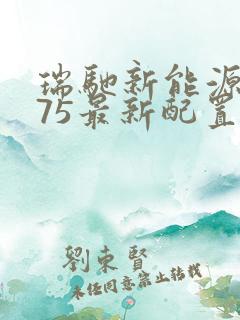 瑞馳新能源
75最新配置
劉東賢
未经同意禁止转载